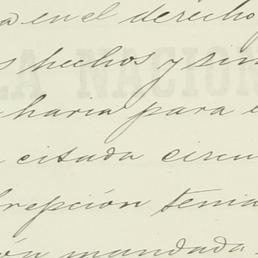 en el derecho
hechos y sin
haria para
citada circu
repción tenia
mandada